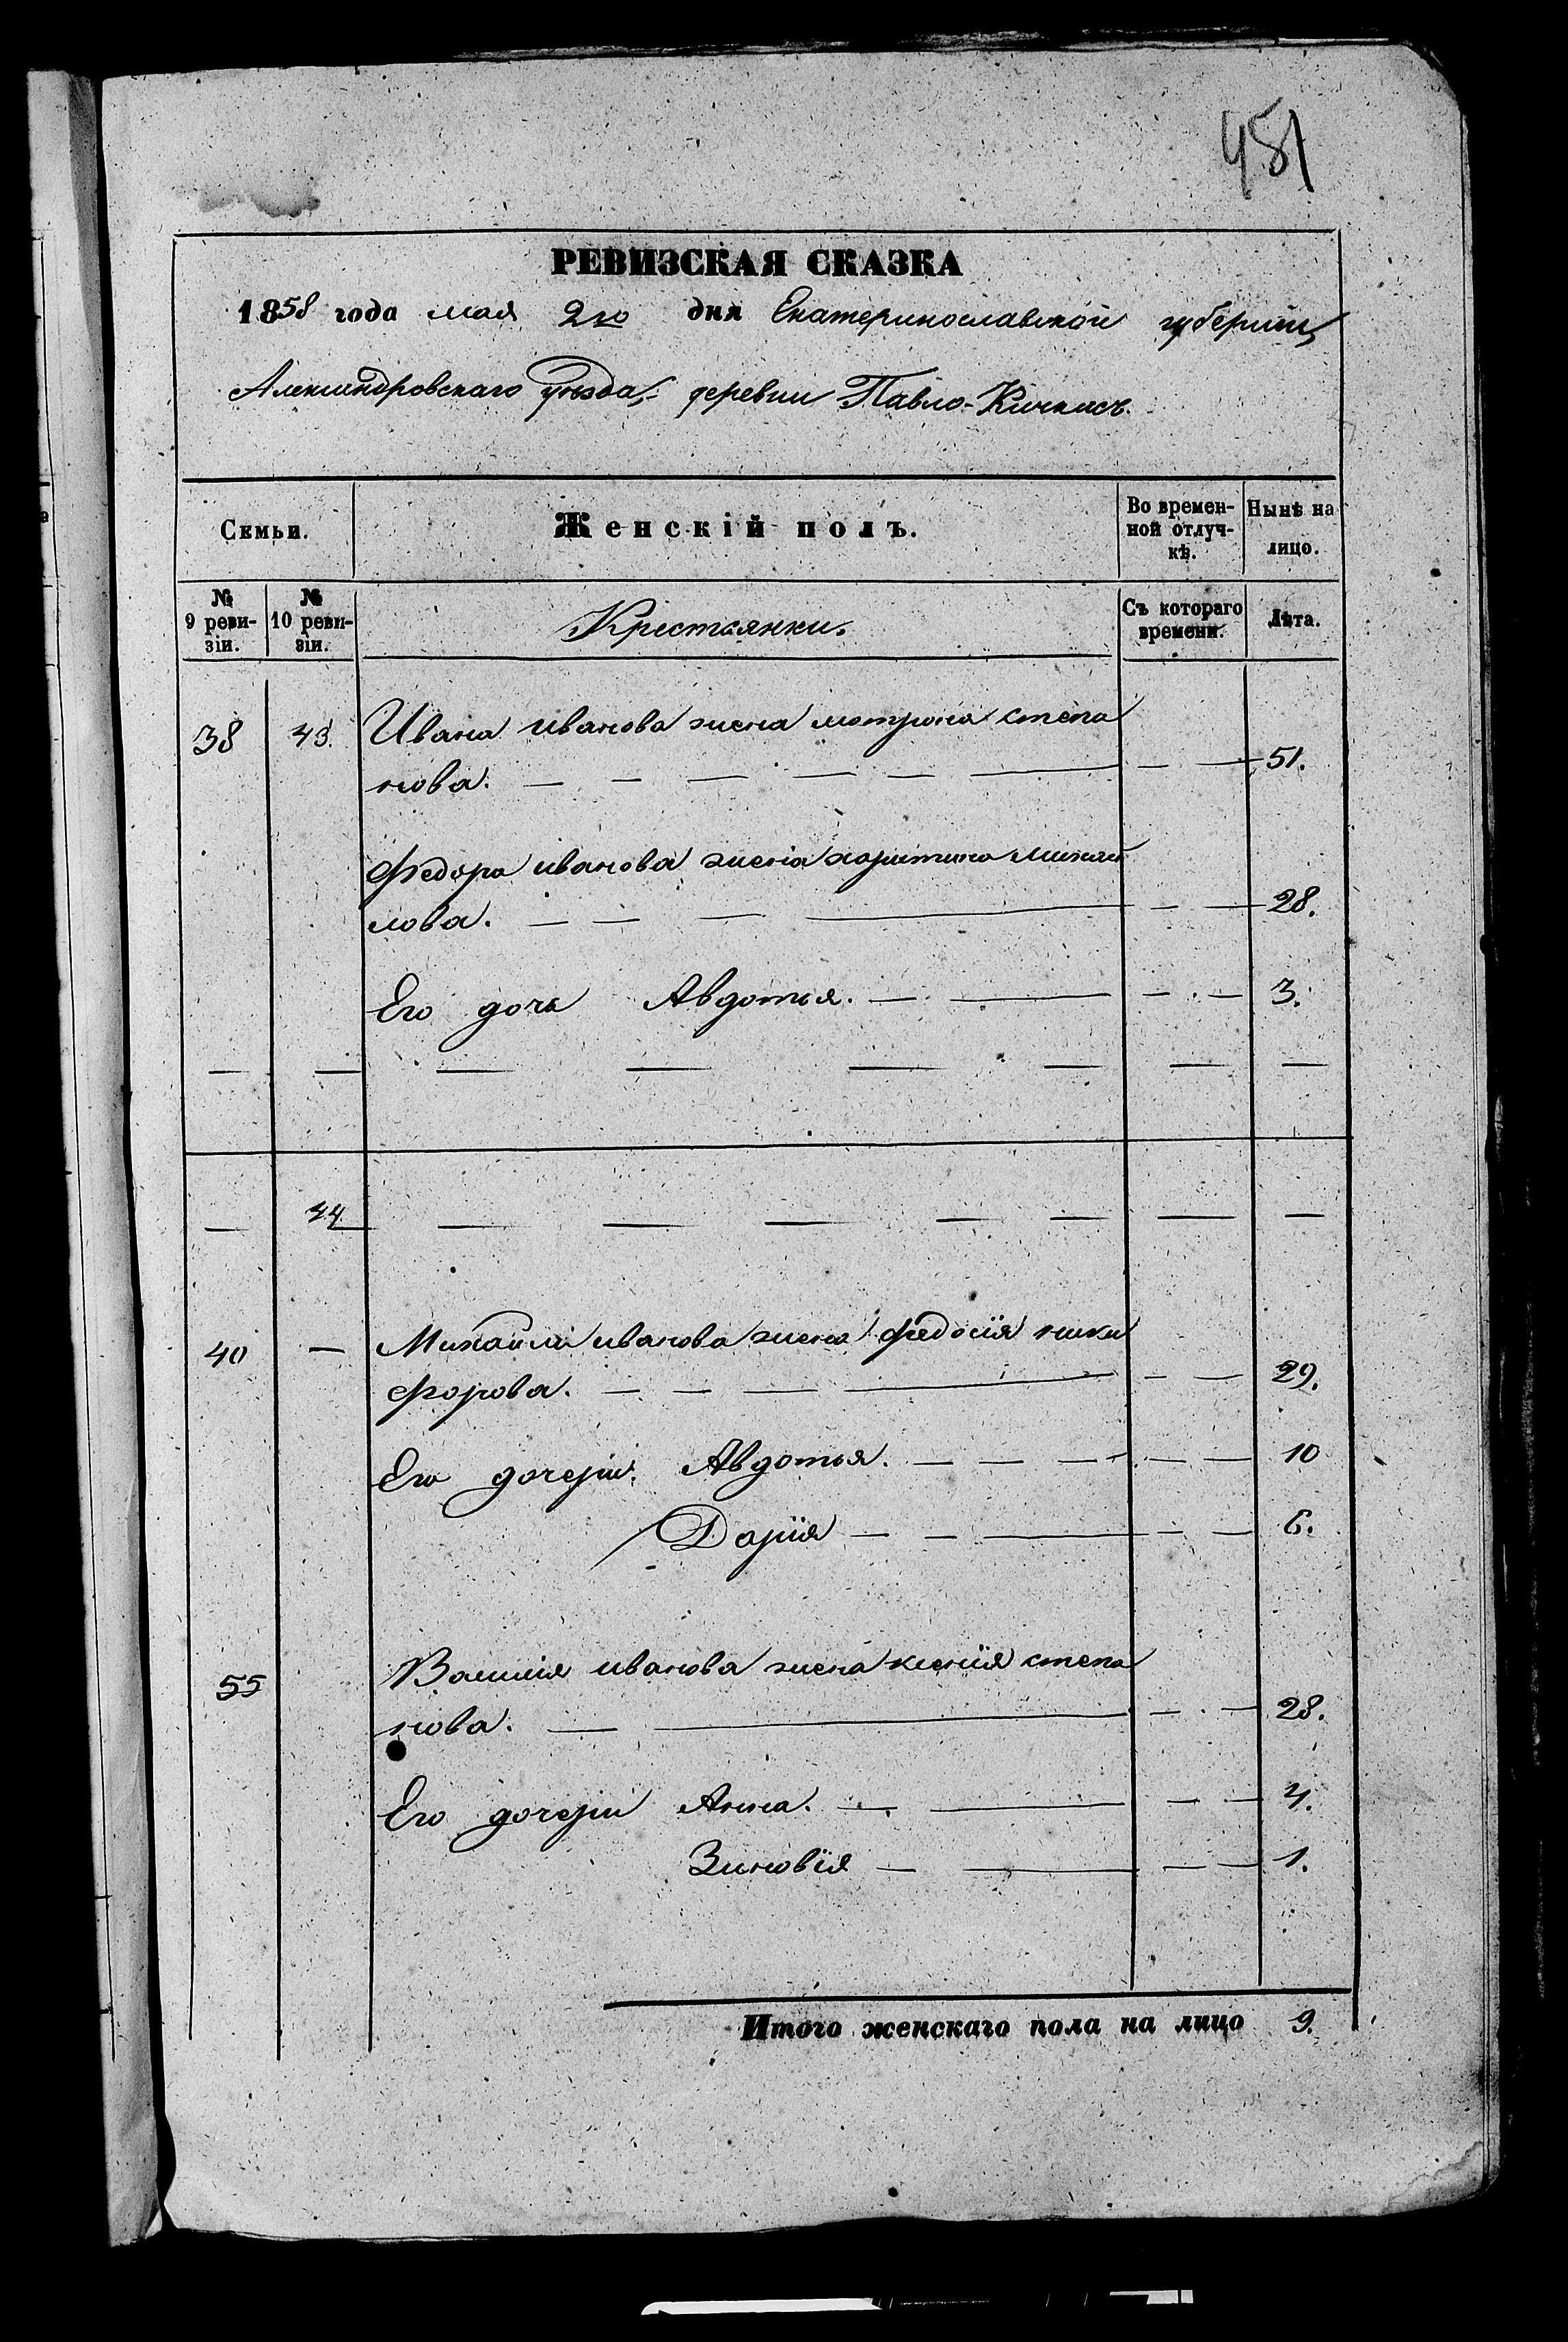 451
РЕВИЗСКАЯ СКАЗКА
1858 года мая 2го дня Екатеринославской губернии
Александровскаго уѣзда, деревни Павло-Кичкасъ.
Семьи. Женскій полъ. Во времен-ной отлуч-кѣ. Нынѣ на лицо.
№ 9 реви-зіи. № 10 реви-зіи. Крестьянки. Съ котораго времени. Лѣта.
38 43. Ивана иванова жена мотрона степа
нова. — — — — — — — — 51.
Федора иванова жена харитина михай
лова. — — — — — — 28.
Его дочь Авдотья. — — — — 3.
— — — — — — — —
— 44 — — — — — — —
40 — Михайла иванова жена федосія ники
форова. — — — — — — 29.
Его дочери: Авдотья. — — — — — 10
Дарія — — — — — 6.
55 Василія иванова жена ксенія степа
нова. — — — — 28.
Его дочери Анна. — — — — 4.
Зиновія — — — — 1.
Итого женскаго пола на лицо 9.